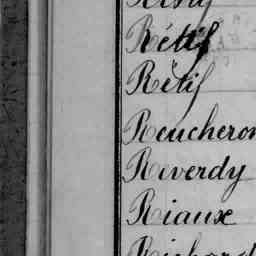 Rétif
Rétif
Reucheron
Reverdy
Riaux
Richard